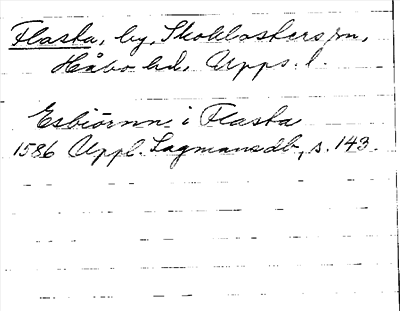 Flasta, by, Skoklosters sn,
Håbo hd, Upps. l.
Esbiörnn i Flasta
1586 Uppl. Lagmansdb, s. 143.